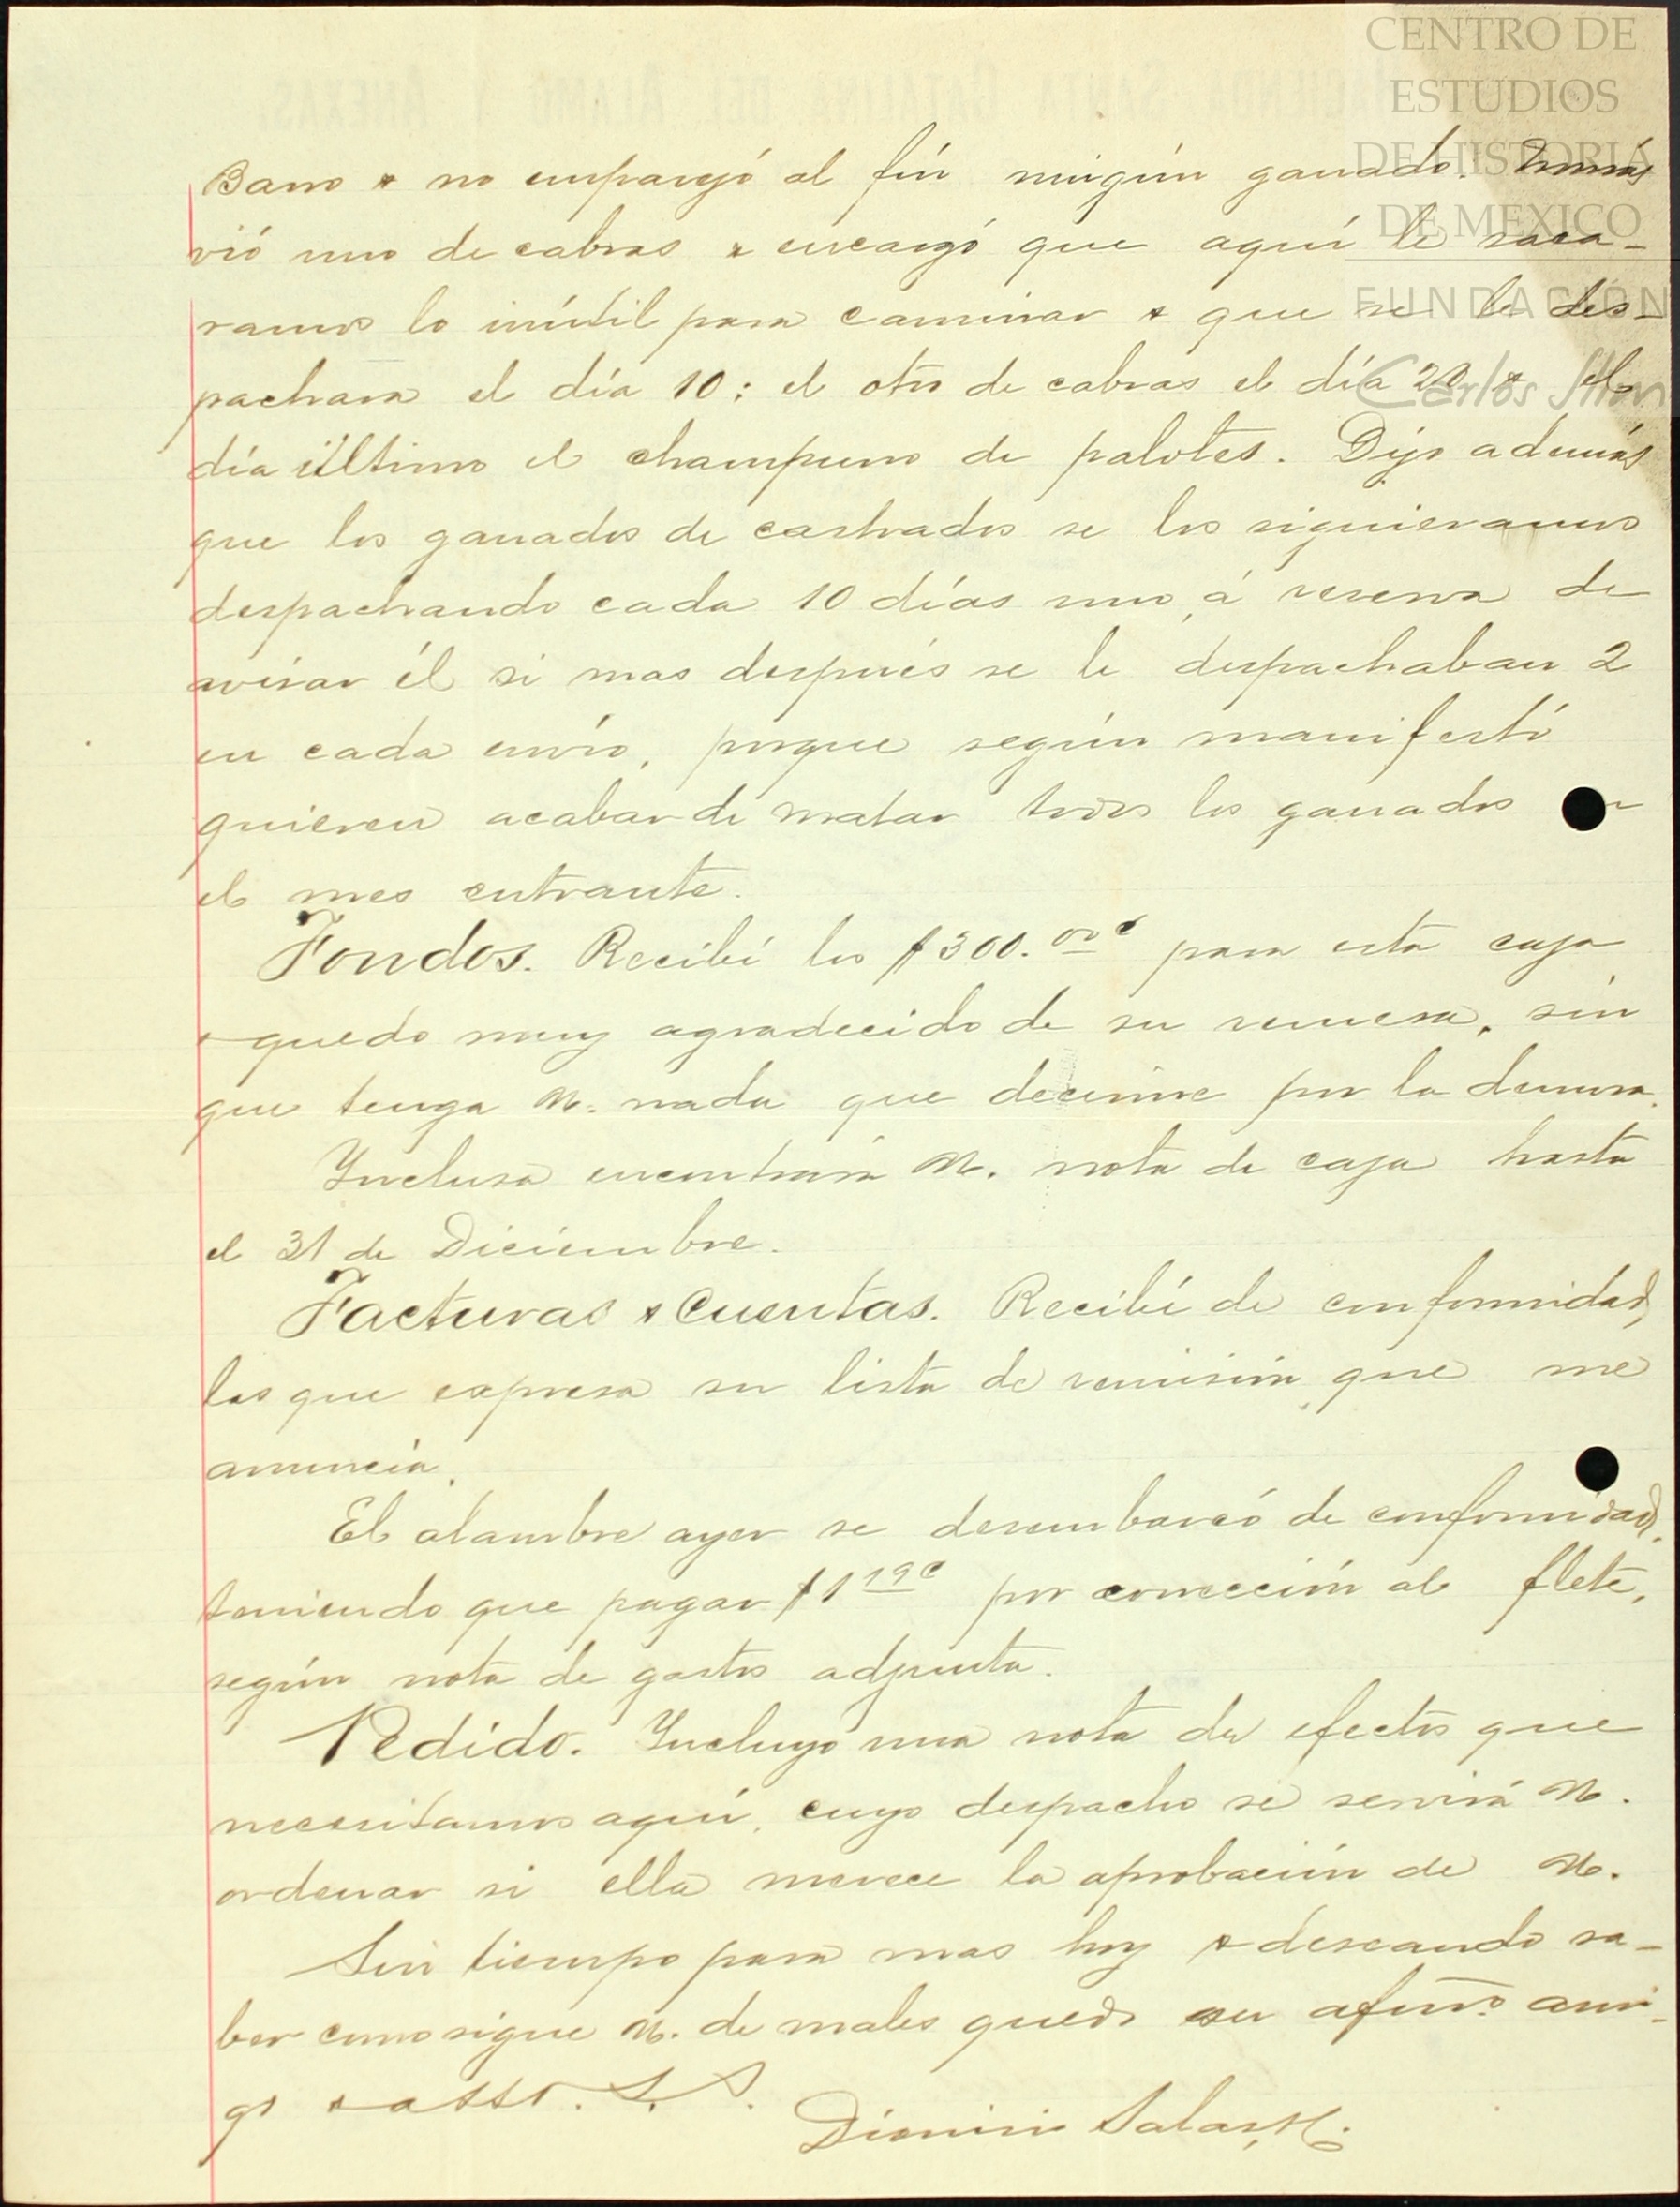 CENTRO DE
ESTUDIOS
DE HISTORIA
DE MEXICO
FUNDACIÓN
Carlos Slim
HACIENDA SANTA CATALINA DEL ALAMO Y ANEXAS.
no emparejó al fín ningún ganado.
vió uno de cabras & encargó que aquí le saca-
ramos lo inútil para caminar & que se le des-
pachara el día 10: el otro de cabras el día 20 & el
día último el champurro de palotes. Dijo además
que los ganados de castrados se los siguieramos
despachando cada 10 días uno, á reserva de
avisar él si mas después se le despachaban 2
en cada envío, porque según manifestó
quieren acabar de matar todos los ganados
el mes entrante.
Fondos. Recibí los $300.00c para esta caja
& quedo muy agradecido de su remesa, sin
que tenga U. nada que decirme por la demora.
Inclusa encontrará U. nota de caja hasta
el 31 de Diciembre.
Facturas & Cuentas. Recibí de conformidad,
las que expresa su lista de remisión que me
anuncia.
El alambre ayer se desembarcó de conformidad,
teniendo que pagar $1 19c por corrección al flete,
según nota de gastos adjunta.
Pedido. Incluyo una nota de efectos que
necesitamos aquí, cuyo despacho se servirá U.
ordenar si ella merece la aprobación de U.
Sin tiempo para mas hoy & deseando sa-
ber como sigue U. de males quedo su afmo. ami-
go & atto. S. S.
Dionisio Salas H.